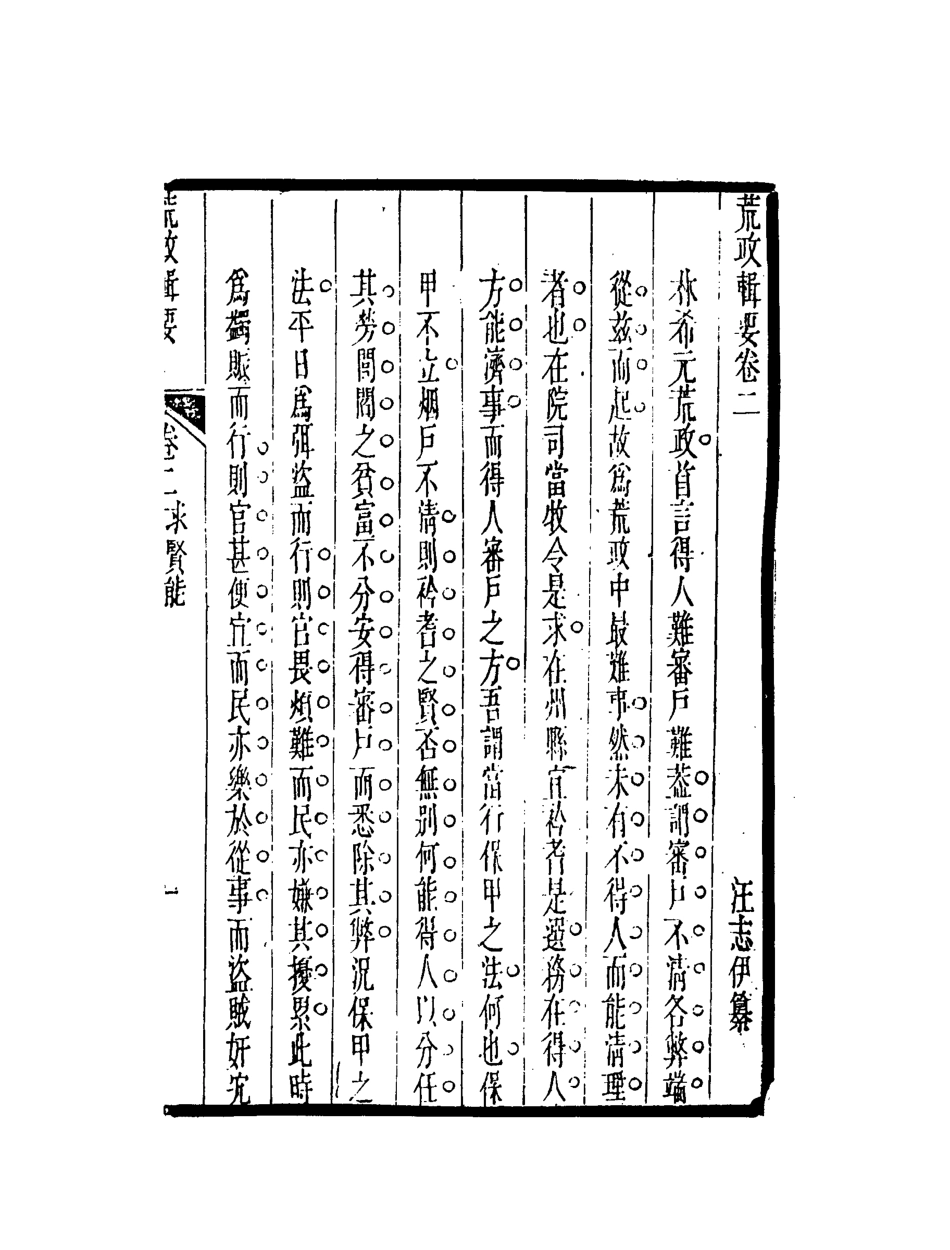 荒政輯要卷二
汪志伊纂
林希元荒政首言得人難審戶難蓋謂審戶不清各弊端
從茲而起故爲荒政中最難事然未有不得人而能清理
者也在院司當牧令是求在州縣宜衿耆是選務在得人
方能濟事而得人審戶之方吾謂當行保甲之法何也保
甲不立烟戶不清則衿耆之賢否無別何能得人以分任
其勞閭閻之貧富不分安得審戶而悉除其弊況保甲之
法平日爲弭盜而行則官畏煩難而民亦嫌其擾累此時
爲蠲賑而行則官甚便宜而民亦樂於從事而盜賊奸宄
荒政輯要
卷二求賢能
一